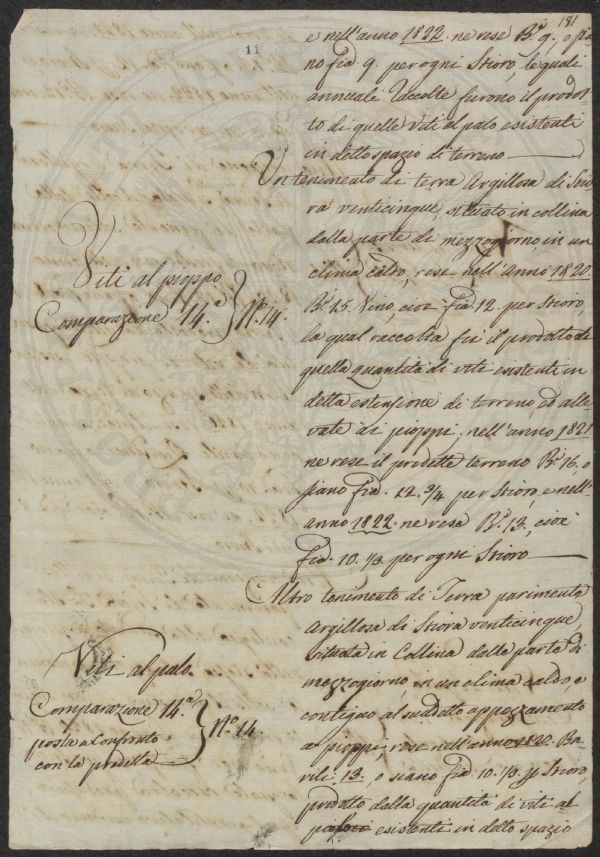 181
11
e nell'anno 1822. ne rese B.i 9, o sia-
no fia 9. per ogni Stioro, le quali
annuale raccolte furono il prodot-
to di quelle viti al palo esistenti
in detto spazio di terreno
Un tenimento di terra Argillosa di Stio-
ra venticinque, situato in collina
dalla parte di mezzogiorno, in un
clima caldo, rese nell'Anno 1820.
B.i 15. Vino, cioè fia 12. per Stioro,
la qual raccolta fu il prodotto di
quella quantità di viti esistenti in
detta estensione di terreno, ed alle-
vate ai pioppi, nell'anno 1821
ne rese il predetto terreno B.i 16. o
siano fia. 12. 3/4 per Stioro, e nell'
anno 1822. ne rese B.i 13, cioè
fia. 10. 1/3. per ogni Stioro
Viti al pioppo
Comparazione 14.a } N.o 14.
Altro tenimento di Terra parimente
Argillosa di Stiora venticinque,
situata in Collina dalla parte di
mezzogiorno, in un clima caldo, e
contiguo al suddetto appezzamento
a pioppi, rese nell'anno 1820. Ba-
rili 13, o siano fia. 10. 1/3. p Stioro,
prodotto dalla quantità di viti al
palo esistenti in detto spazio
Viti al palo
Comparazione 14.a } N.o 14
posta a Confronto
con la predetta